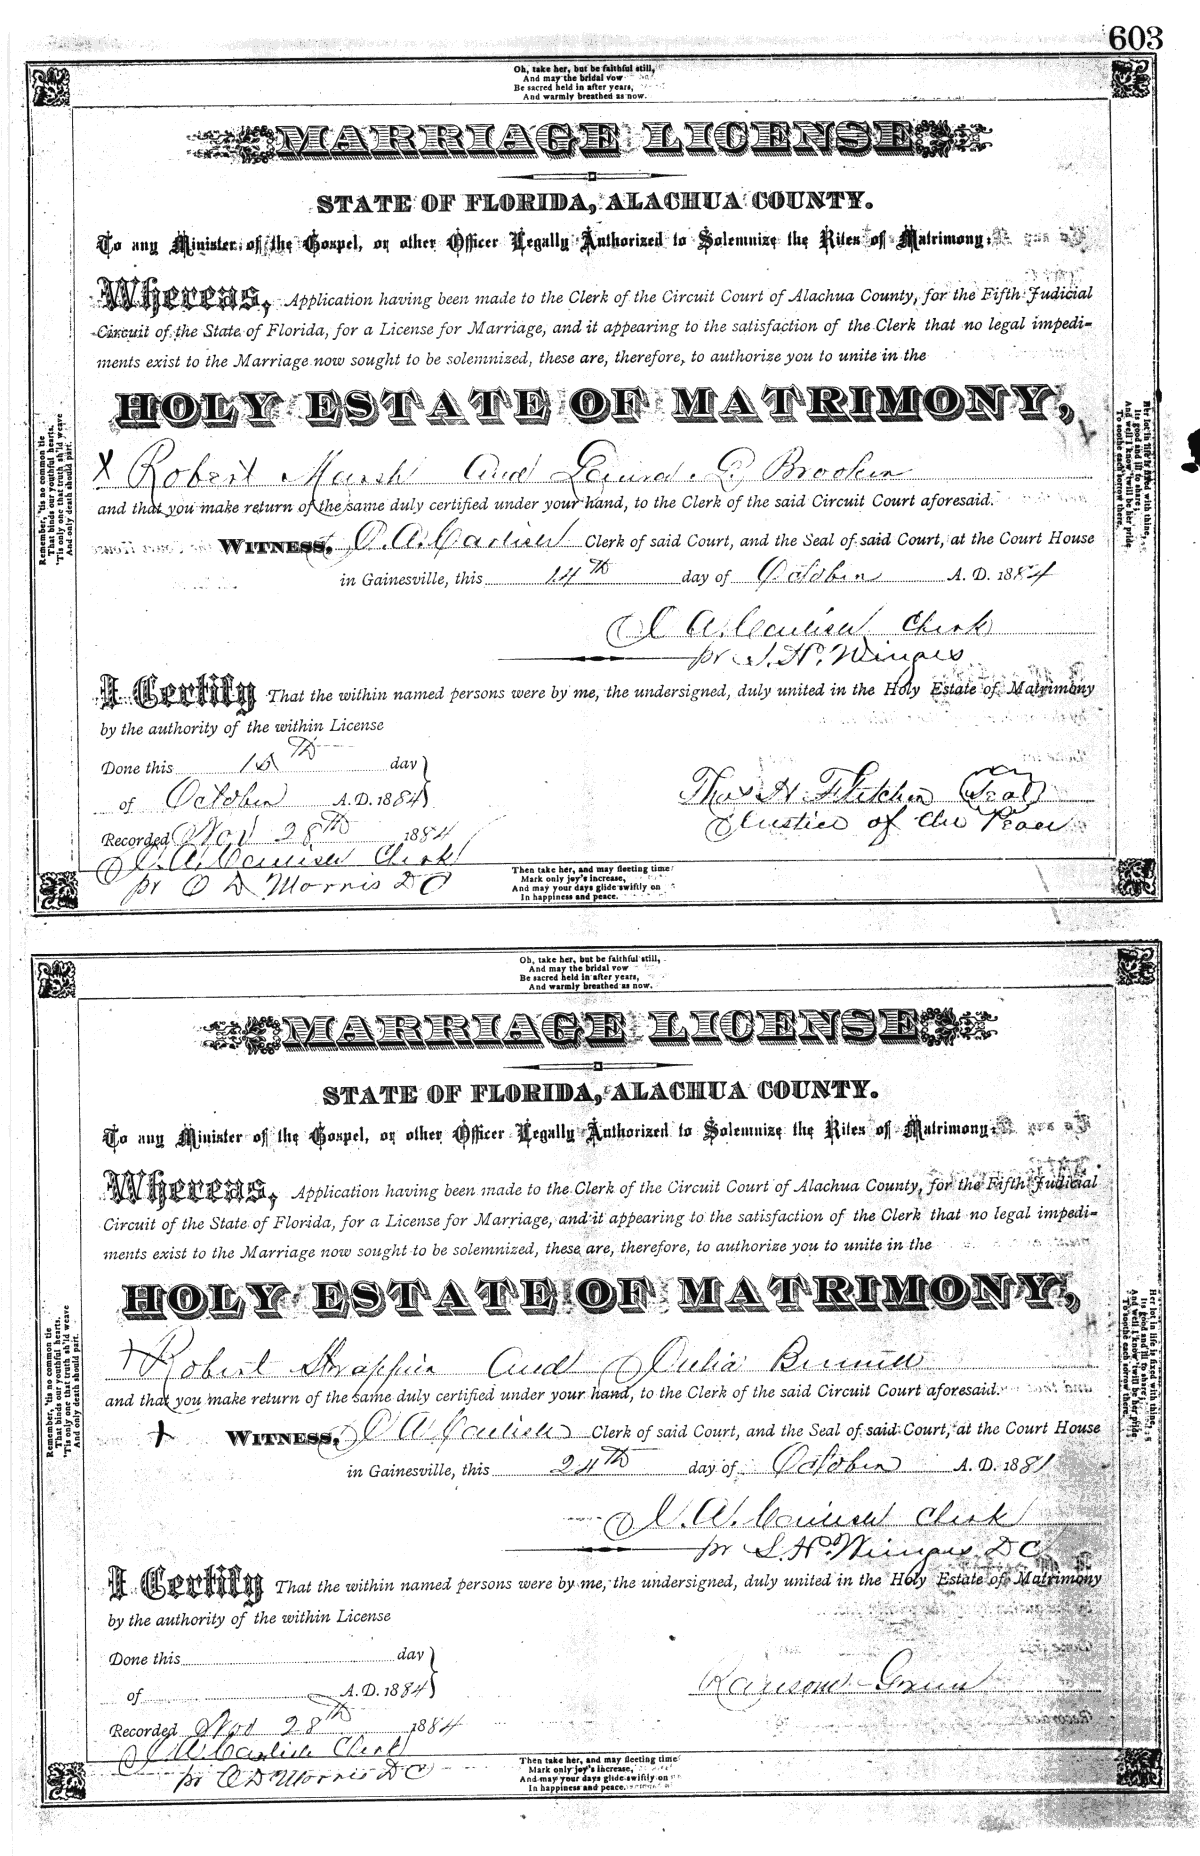 603
Oh, take her, but be faithful still,
And may the bridal vow
Be sacred held in after years,
And warmly breathed as now.
MARRIAGE LICENSE
STATE OF FLORIDA, ALACHUA COUNTY.
To any Minister of the Gospel, or other Officer Legally Authorized to Solemnize the Rites of Matrimony:
Whereas, Application having been made to the Clerk of the Circuit Court of Alachua County, for the Fifth Judicial
Circuit of the State of Florida, for a License for Marriage, and it appearing to the satisfaction of the Clerk that no legal impedi-
ments exist to the Marriage now sought to be solemnized, these are, therefore, to authorize you to unite in the
HOLY ESTATE OF MATRIMONY,
X Robert Marsh and
and that you make return of the same duly certified under your hand, to the Clerk of the said Circuit Court aforesaid.
WITNESS, J. A. Carlisle Clerk of said Court, and the Seal of said Court, at the Court House
in Gainesville, this 14th day of October A. D. 1884
J. A. Carlisle Clerk
pr S. H. Winges
I Certify That the within named persons were by me, the undersigned, duly united in the Holy Estate of Matrimony
by the authority of the within License
Done this day
of October A. D. 1884
Thos H Fletcher (Seal)
Justice of the Peace
Recorded Nov 28th 1884
J. A. Carlisle Clerk
pr O D Morris D C
Remember, 'tis no common tie
That binds our youthful hearts.
'Tis only one that truth sh'ld weave
And only death should part.
Her lot in life is fixed with thine,
Its good and ill to share;
And well I know 'twill be her pride
To soothe each sorrow there.
Then take her, and may fleeting time
Mark only joy's increase,
And may your days glide swiftly on
In happiness and peace.
Oh, take her, but be faithful still,
And may the bridal vow
Be sacred held in after years,
And warmly breathed as now.
MARRIAGE LICENSE
STATE OF FLORIDA, ALACHUA COUNTY.
To any Minister of the Gospel, or other Officer Legally Authorized to Solemnize the Rites of Matrimony:
Whereas, Application having been made to the Clerk of the Circuit Court of Alachua County, for the Fifth Judicial
Circuit of the State of Florida, for a License for Marriage, and it appearing to the satisfaction of the Clerk that no legal impedi-
ments exist to the Marriage now sought to be solemnized, these are, therefore, to authorize you to unite in the
HOLY ESTATE OF MATRIMONY,
Robert and Julia
and that you make return of the same duly certified under your hand, to the Clerk of the said Circuit Court aforesaid.
WITNESS, J. A. Carlisle Clerk of said Court, and the Seal of said Court, at the Court House
in Gainesville, this 24th day of October A. D. 1881
J. A. Carlisle Clerk
pr S. H. Winges D C
I Certify That the within named persons were by me, the undersigned, duly united in the Holy Estate of Matrimony
by the authority of the within License
Done this day
of A. D. 1884
Ransom Green
Recorded Nov 28th 1884
J. A. Carlisle Clerk
pr O D Morris D C
Remember, 'tis no common tie
That binds our youthful hearts.
'Tis only one that truth sh'ld weave
And only death should part.
Her lot in life is fixed with thine,
Its good and ill to share;
And well I know 'twill be her pride
To soothe each sorrow there.
Then take her, and may fleeting time
Mark only joy's increase,
And may your days glide swiftly on
In happiness and peace.